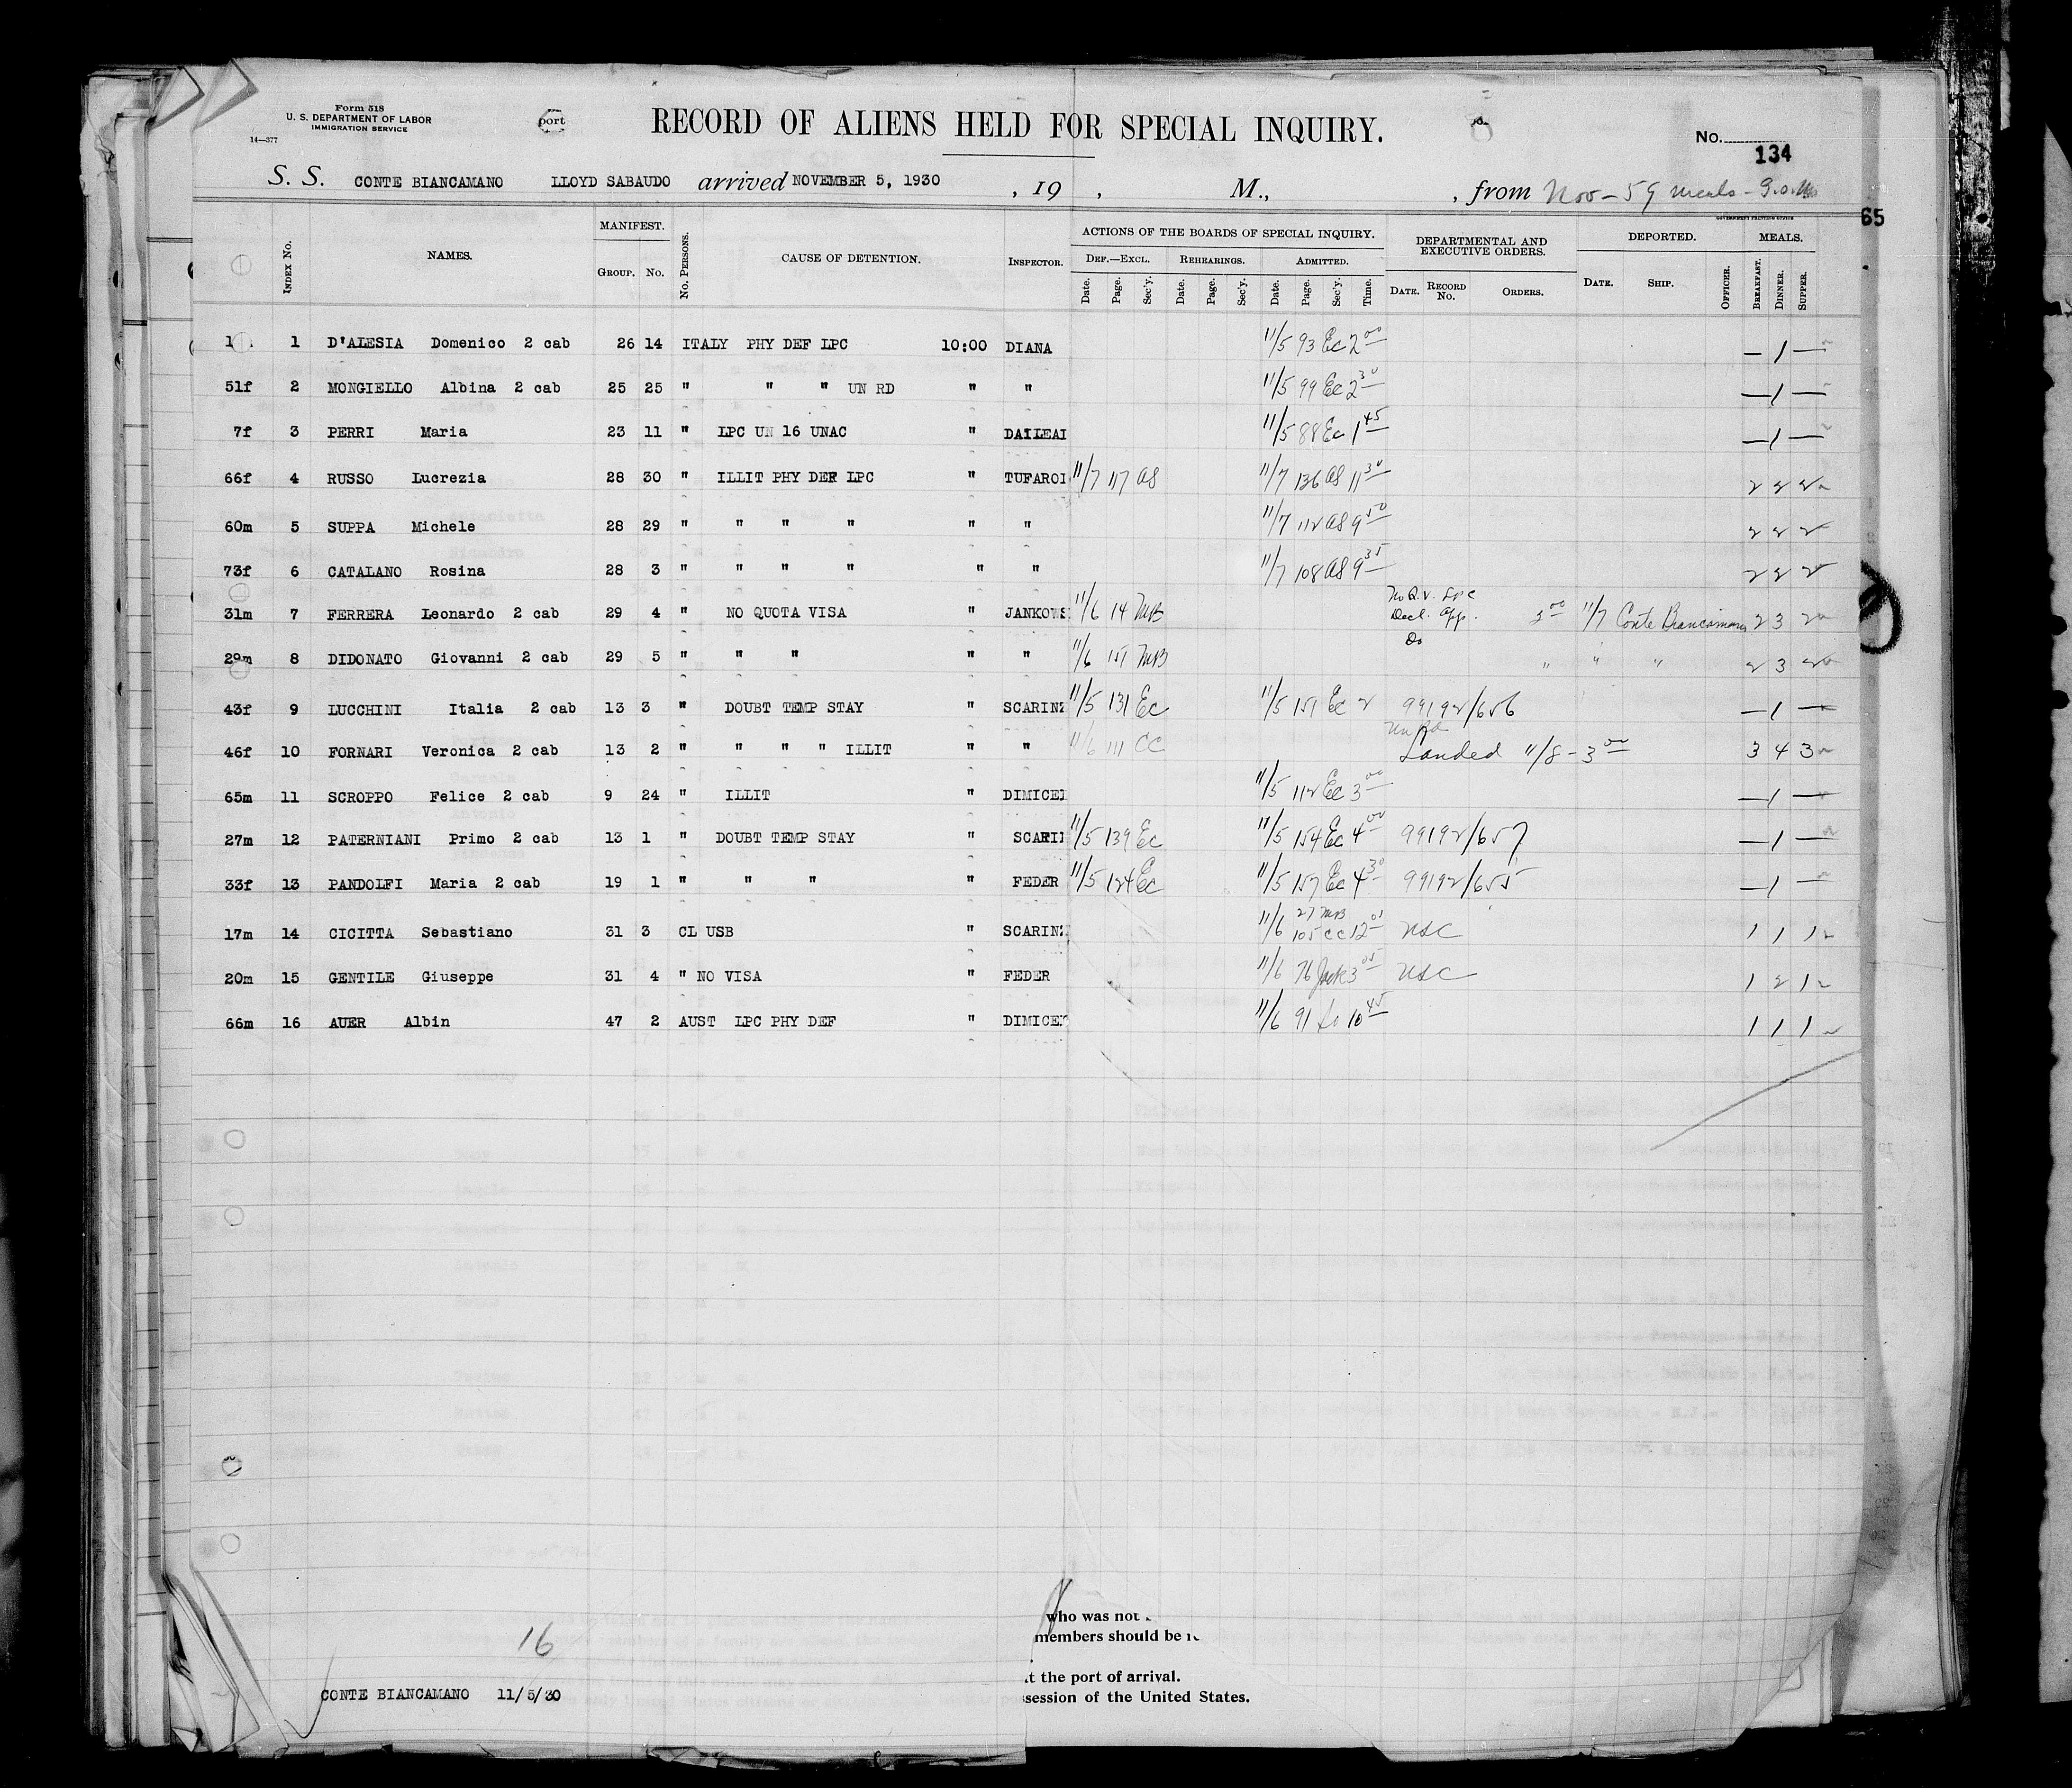 Form 518
U. S. DEPARTMENT OF LABOR
IMMIGRATION SERVICE
14—377
port
RECORD OF ALIENS HELD FOR SPECIAL INQUIRY.
No.
134
S. S. CONTE BIANCAMANO LLOYD SABAUDO arrived NOVEMBER 5, 1930 , 19 , M., , from Nov - 59 meals -
65
GOVERNMENT PRINTING OFFICE
INDEX No. NAMES. MANIFEST. GROUP. No. No. PERSONS. CAUSE OF DETENTION. INSPECTOR. ACTIONS OF THE BOARDS OF SPECIAL INQUIRY. DEF.—EXCL. Date. Page. Sec'y. REHEARINGS. Date. Page. Sec'y. ADMITTED. Date. Page. Sec'y. Time. DEPARTMENTAL AND EXECUTIVE ORDERS. DATE. RECORD No. ORDERS. DEPORTED. DATE. SHIP. OFFICER. MEALS. BREAKFAST. DINNER. SUPPER.
1 D'ALESIA Domenico 2 cab 26 14 ITALY PHY DEF LPC 10:00 DIANA 11/5 93 Ec 2 00 — 1 —
51f 2 MONGIELLO Albina 2 cab 25 25 " " " UN RD " " 11/5 99 Ec 2 30 — 1 —
7f 3 PERRI Maria 23 11 " LPC UN 16 UNAC " DAILEAI 11/5 88 Ec 1 45 — 1 —
66f 4 RUSSO Lucrezia 28 30 " ILLIT PHY DEF LPC " TUFAROI 11/7 117 AS 11/7 136 AS 11 30 2 2 2
60m 5 SUPPA Michele 28 29 " " " " " " 11/7 112 AS 9 50 2 2 2
73f 6 CATALANO Rosina 28 3 " " " " " " 11/7 108 AS 9 35 2 2 2
31m 7 FERRERA Leonardo 2 cab 29 4 " NO QUOTA VISA " JANKOWS 11/6 14 MB No Q.V. LPC Decl. App. 3 00 11/7 Conte Biancamano 2 3 2
29m 8 DIDONATO Giovanni 2 cab 29 5 " " " " " 11/6 151 MB Do " " " 2 3 2
43f 9 LUCCHINI Italia 2 cab 13 3 " DOUBT TEMP STAY " SCARINZ 11/5 131 Ec 11/5 151 Ec 2 99192/656 — 1 —
46f 10 FORNARI Veronica 2 cab 13 2 " " " " ILLIT " " 11/6 111 CC Un Rd Landed 11/8 - 3 00 3 4 3
65m 11 SCROPPO Felice 2 cab 9 24 " ILLIT " DIMICEI 11/5 112 Ec 3 00 — 1 —
27m 12 PATERNIANI Primo 2 cab 13 1 " DOUBT TEMP STAY " SCARI 11/5 139 Ec 11/5 154 Ec 4 00 99192/657 — 1 —
33f 13 PANDOLFI Maria 2 cab 19 1 " " " " FEDER 11/5 124 Ec 11/5 157 Ec 4 30 99192/655 — 1 —
17m 14 CICITTA Sebastiano 31 3 CL USB " SCARINZ 11/6 27 MB 105 CC 12 01 USC 1 1 1
20m 15 GENTILE Giuseppe 31 4 " NO VISA " FEDER 11/6 76 3 05 USC 1 2 1
66m 16 AUER Albin 47 2 AUST LPC PHY DEF " DIMICE 11/6 91 10 45 1 1 1
16
CONTE BIANCAMANO 11/5/30
who was not
members should be
t the port of arrival.
session of the United States.